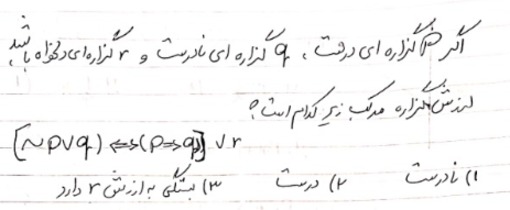 اگر p گزاره ای درست ، q گزاره ای نادرست و r گزاره ای دلخواه باشد
ارزش گزاره مرکب زیر کدام است؟
[(~p∨q) ⇔ (p⇒q)] ∨ r
۱) نادرست ۲) درست ۳) بستگی به ارزش r دارد